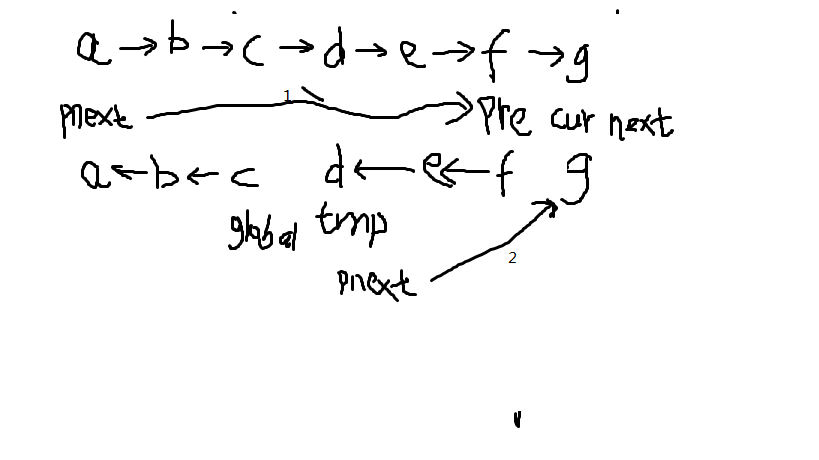 a → b → c → d → e → f → g
1
pnext → pre cur next
a ← b ← c d ← e ← f g
global tmp
2
pnext